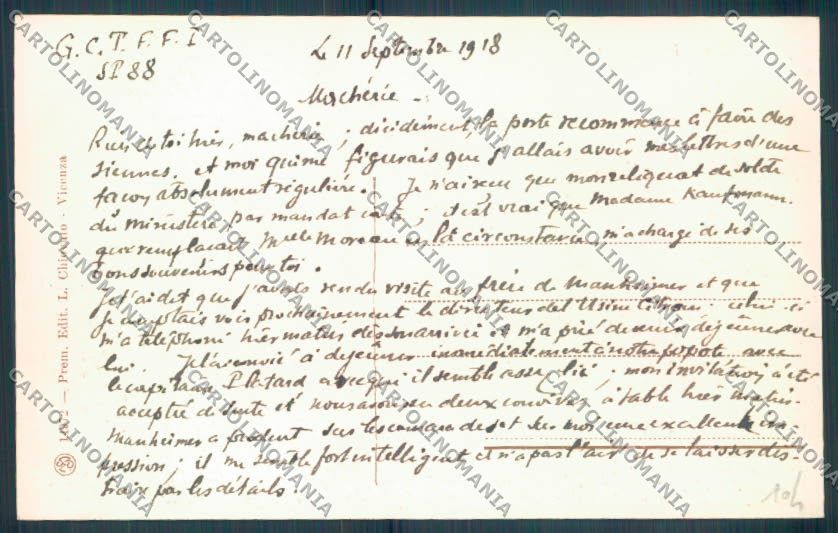 G.C.T.F.F.I
SP 88
Le 11 Septembre 1918
Ma chérie -
Rien de toi hier, ma chérie ; décidément, la poste recommence à faire des
siennes, et moi qui me figurais que j'allais avoir mes lettres d'une
façon absolument régulière. Je n'ai reçu que mon reliquat de solde
du ministère par mandat carte ; il est vrai que Madame Kaufmann
qui remplaçait Melle Moreau en la circonstance, m'a chargé de ses
bons souvenirs pour toi.
Je t'ai dit que j'avais rendu visite au frère de Manheimer et que
je comptais voir prochainement le directeur de l'Usine Citroen : celui-ci
m'a téléphoné hier matin dès son arrivée et m'a prié de venir déjeuner avec
lui. Je l'ai convié à déjeuner immédiatement à notre popote avec
le capitaine Pletard avec qui il semble assez lié ; mon invitation a été
acceptée de suite et nous avons eu deux convives à table hier matin.
Manheimer a produit sur les camarades et sur moi une excellente im-
pression ; il me semble fort intelligent et n'a pas l'air de se laisser dis-
traire par les détails.
10h
11072 — Prem. Edit. L. Chiovato - Vicenza
CARTOLINOMANIA